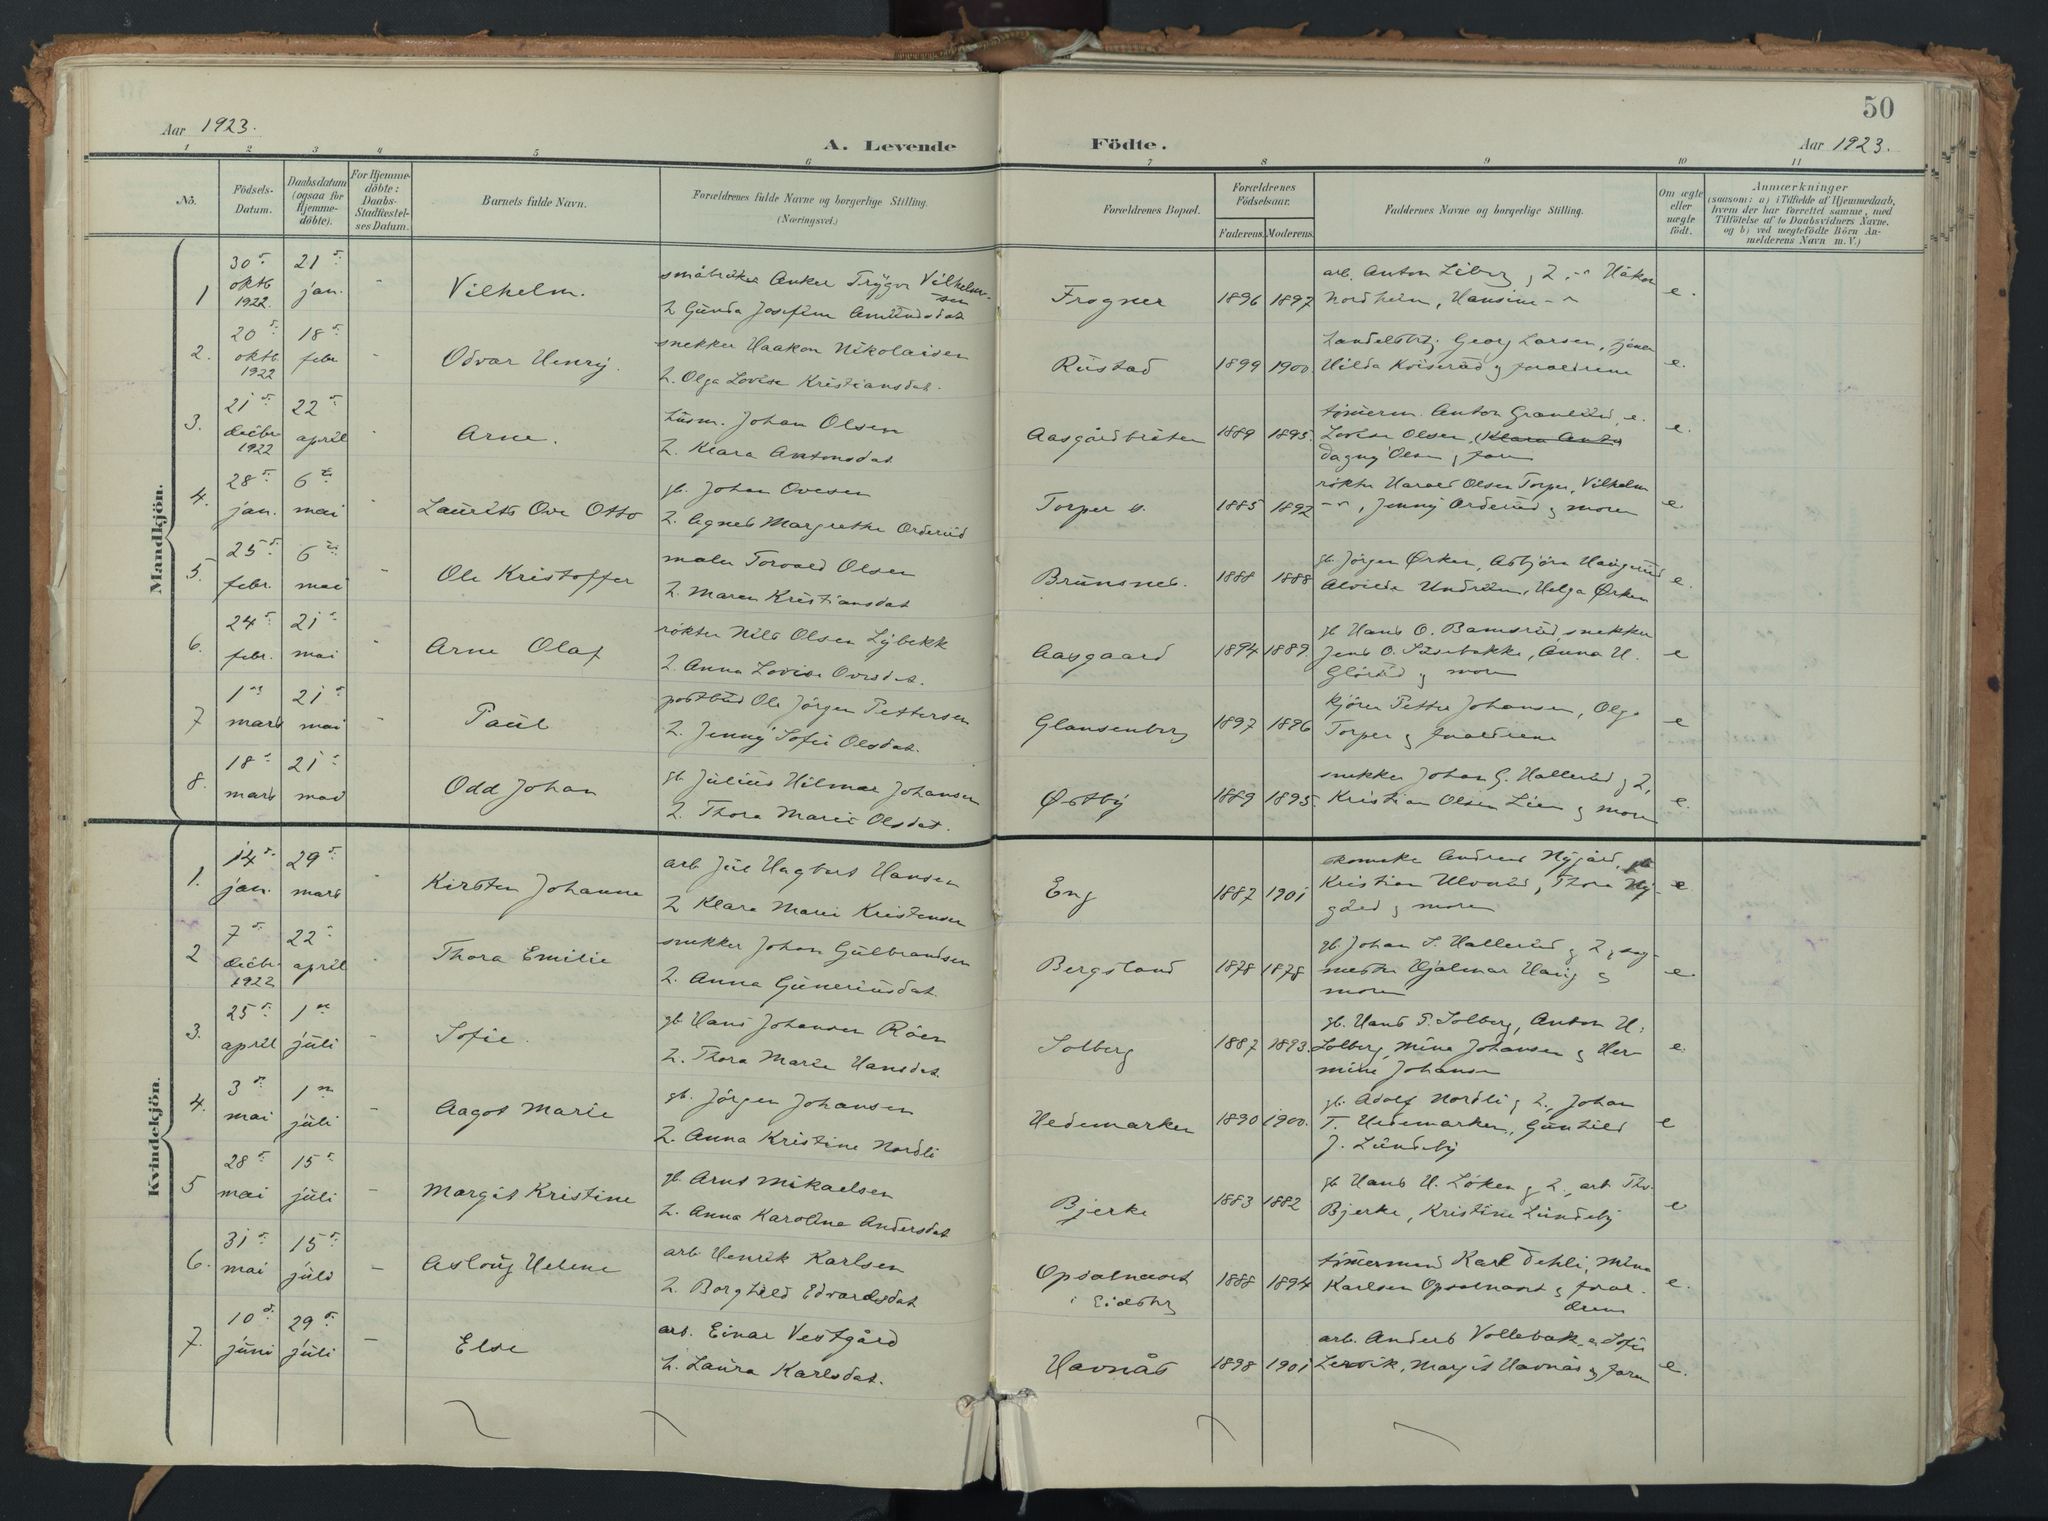 50
Aar 1923.
A. Levende Födte.
Aar 1923.
1 2 3 4 5 6 7 8 9 10 11
No.
Födsels-Datum.
Daabsdatum (ogsaa for Hjemme-döbte).
For Hjemme-döbte: Daabs-Stadfæstel-ses Datum.
Barnets fulde Navn.
Forældrenes fulde Navne og borgerlige Stilling.
(Næringsvei.)
Forældrenes Bopæl.
Forældrenes Födselsaar.
Faderens. Moderens.
Faddernes Navne og borgerlige Stilling.
Om ægte eller uægte födt.
Anmærkninger
(saasom: a) i Tilfælde af Hjemmedaab,
hvem der har forrettet samme, med
Tilföielse af to Daabsvidners Navne.
og b) ved uegtefödte Börn An-
melderens Navn m. V.)
Mandkjön.
1 30 oktb 1922 21 jan. Vilhelm. småbruker Anker Trygve Vilhelm-sen
2 Gunda Josefine Amundsdat. Frogner 1896 1897 arb. Anton Liberg og 2, Håkon
Nordheim, Hansine e.
2. 20 oktb 1922 18 febr Odvar Henry. snekker Haakon Nikolaisen
2. Olga Lovise Kristiansdat. Rustad 1899 1900. Georg Larsen,
Hilda og foraeldrene e.
3. 21 decbr 1922 22 april Arne. husm. Johan Olsen
2. Klara Antonsdat. Aasgårdbråten 1889 1895. tömerm. Anton Granlund, e.
Lovise Olsen, (Klara Anto)
Dagny Olsen og faren e.
4. 28 jan. 6 mai Laurits Ove Otto gb. Johan Ovesen
2. Agnes Margrethe Orderud Torper 1885 1892 røkter Harald Olsen Torper, Vilhelm
Jenny Orderud og moren e
5. 25 febr. 6 mai Ole Kristoffer maler Torvald Olsen
2. Maren Kristiansdat Brunsnes. 1888 1888 gb. Jörgen Ørken, Asbjörn Haugerud
Alvilde Undrum, Helga Ørken e.
6. 24 febr. 21 mai Arne Olaf røkter Nils Olsen Lybekk
2. Anna Lovise Ovesdat. Aasgaard 1894 1889. gb Hans O. Bamsrud, snekker
Jens O. , Anna H.
og moren e
7 1 mars 21 mai Paul postbud Ole Jörgen Pettersen
2. Jenny Sofie Olsdat. Glansenberg 1897 1896 kjörer Petter Johansen, Olga
Torper og foraeldrene e
8. 18 mars 21 mai Odd Johan gb. Julius Hilmar Johansen
2. Thora Marie Olsdat. Østby 1889 1895. snekker Johan G. Hallerud og 2,
Kristian Olsen Lien og moren e.
Kvindekjön.
1. 14 jan. 29 mars Kirsten Johanne arb Jul Hagbart Hansen
2 Klara Marie Kristensen Eng 1887 1901 skomaker Andreas Nygård,
Kristian Ulverud, Thora Ny-
gård og moren e
2 7 decbr 1922 22 april Thora Emilie snekker Johan Gulbrandsen
2. Anna Guneriusdat. Bergsland 1878 1878 gb. Johan S. Hallerud og 2, sag-
mester Hjalmar Haug og
moren e
3. 25 april 1 juli Sofie. gb. Hans Johansen Röen
2. Thora Marie Hansdat. Solberg 1887 1893. gb. Hans P. Solberg, Anton H.
Solberg, Mina Johansen og Her-
mine Johansen e
4. 3 mai 1 juli Aagot Marie gb. Jörgen Johansen
2. Anna Kristine Nordli Hedemarken 1890 1900. gb. Adolf Nordli og 2., Johan
T. Hedemarken, Gunhild
J. Lundeby e
5 28 mai 15 juli Margit Kristine gb. Arne Mikaelsen
2. Anna Karoline Andersdat Bjerke 1883 1882 gb Hans H. Löken og 2., arb. Ths.
Bjerke, Kristine Lundeby e
6. 31 mai 15 juli Aslaug Helene arb Henrik Karlsen
2. Borghild Edvardsdat Opsalnæset i Eidsbg 1888 1894 tömermand Karl Dehli, Mina
Karlsen Opsalnæset og foræl-
drene e.
7. 10 juni 29 juli Else arb. Einar Vestgård
2. Laura Karlsdat. Havnås 1898 1901 arb. Anders Vollebæk, Sofie
Lervik, Margit Havnås og faren e.